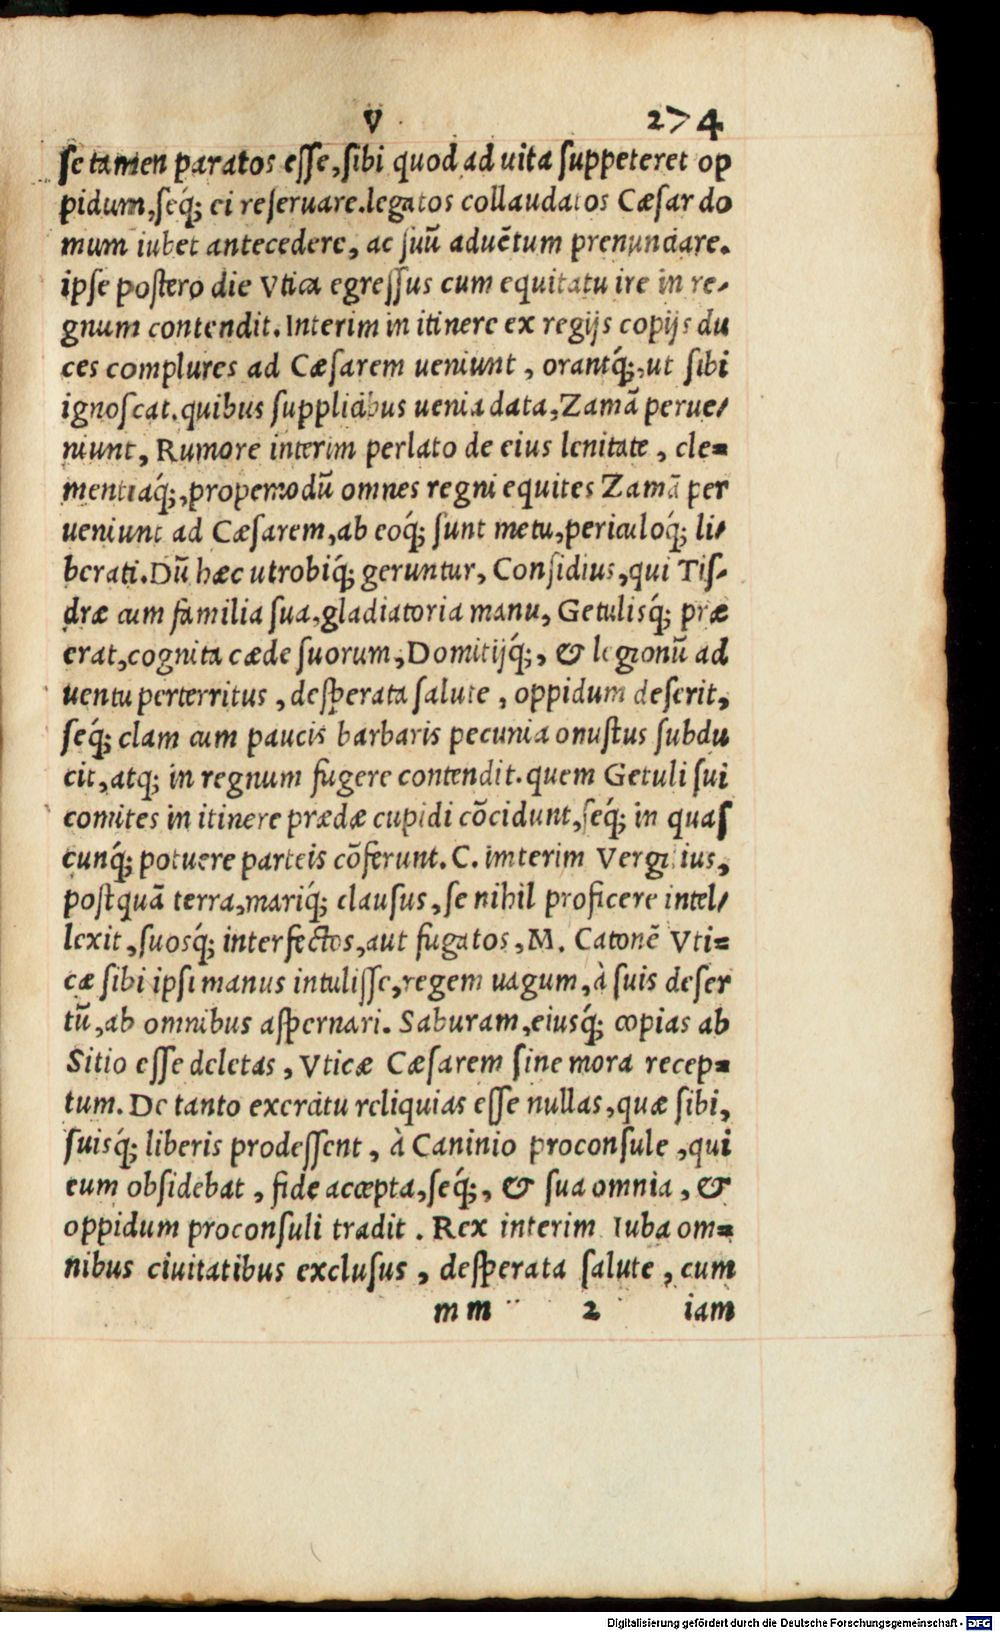 V 274
se tamen paratos esse, sibi quod ad uita suppeteret op
pidum, seq́; ei reseruare. legatos collaudatos Cæsar do
mum iubet antecedere, ac suũ aduẽtum prenunciare.
ipse postero die Vtica egressus cum equitatu ire in re-
gnum contendit. Interim in itinere ex regijs copijs du
ces complures ad Cæsarem ueniunt, orantq́;, ut sibi
ignoscat. quibus supplicibus uenia data, Zamã perue-
niunt, Rumore interim perlato de eius lenitate, cle=
mentiaq́;, propemodũ omnes regni equites Zamã per
ueniunt ad Cæsarem, ab eoq́; sunt metu, periculoq́; li-
berati. Dũ hæc utrobiq́; geruntur, Considius, qui Tis-
dræ cum familia sua, gladiatoria manu, Getulisq́; præ
erat, cognita cæde suorum, Domitijq́;, & legionũ ad
uentu perterritus, desperata salute, oppidum deserit,
seq́; clam cum paucis barbaris pecunia onustus subdu
cit, atq; in regnum fugere contendit. quem Getuli sui
comites in itinere prædæ cupidi cõcidunt, seq́; in quas
cunq́; potuere parteis cõferunt. C. imterim Vergilius,
postquã terra, mariq́; clausus, se nihil proficere intel-
lexit, suosq́; interfectos, aut fugatos, M. Catonẽ Vti=
cæ sibi ipsi manus intulisse, regem uagum, à suis deser
tũ, ab omnibus aspernari. Saburam, eiusq́; copias ab
Sitio esse deletas, Vticæ Cæsarem sine mora recep=
tum. De tanto exercitu reliquias esse nullas, quæ sibi,
suisq́; liberis prodessent, à Caninio proconsule, qui
eum obsidebat, fide accepta, seq́;, & sua omnia, &
oppidum proconsuli tradit. Rex interim Iuba om=
nibus ciuitatibus exclusus, desperata salute, cum
mm 2 iam
Digitalisierung gefördert durch die Deutsche Forschungsgemeinschaft - DFG